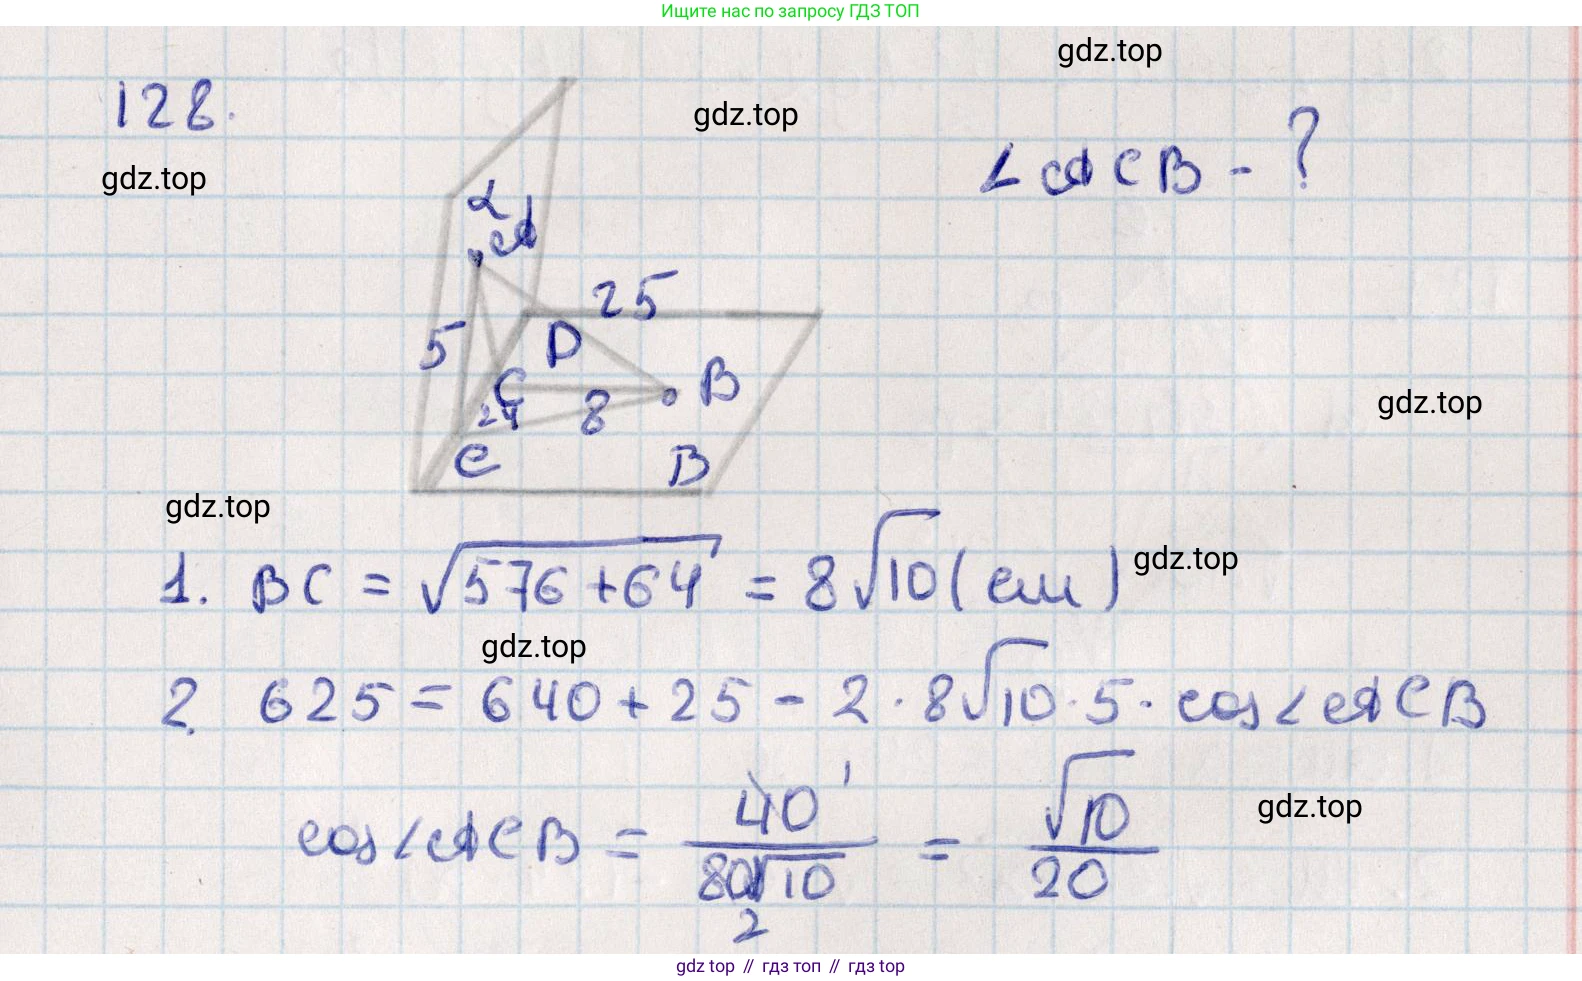 Ищите нас по запросу ГДЗ ТОП
gdz.top
128.
gdz.top
∠ACB - ?
gdz.top
α
A
25
5
D
C
B
24
8
gdz.top
C
B
gdz.top
1. BC = √576+64 = 8√10 (см)
gdz.top
gdz.top
2. 625 = 640 + 25 - 2 · 8√10 · 5 · cos∠ACB
cos∠ACB = 40 1 / 80√10 2 = √10 / 20
gdz.top
gdz top // гдз топ // гдз top